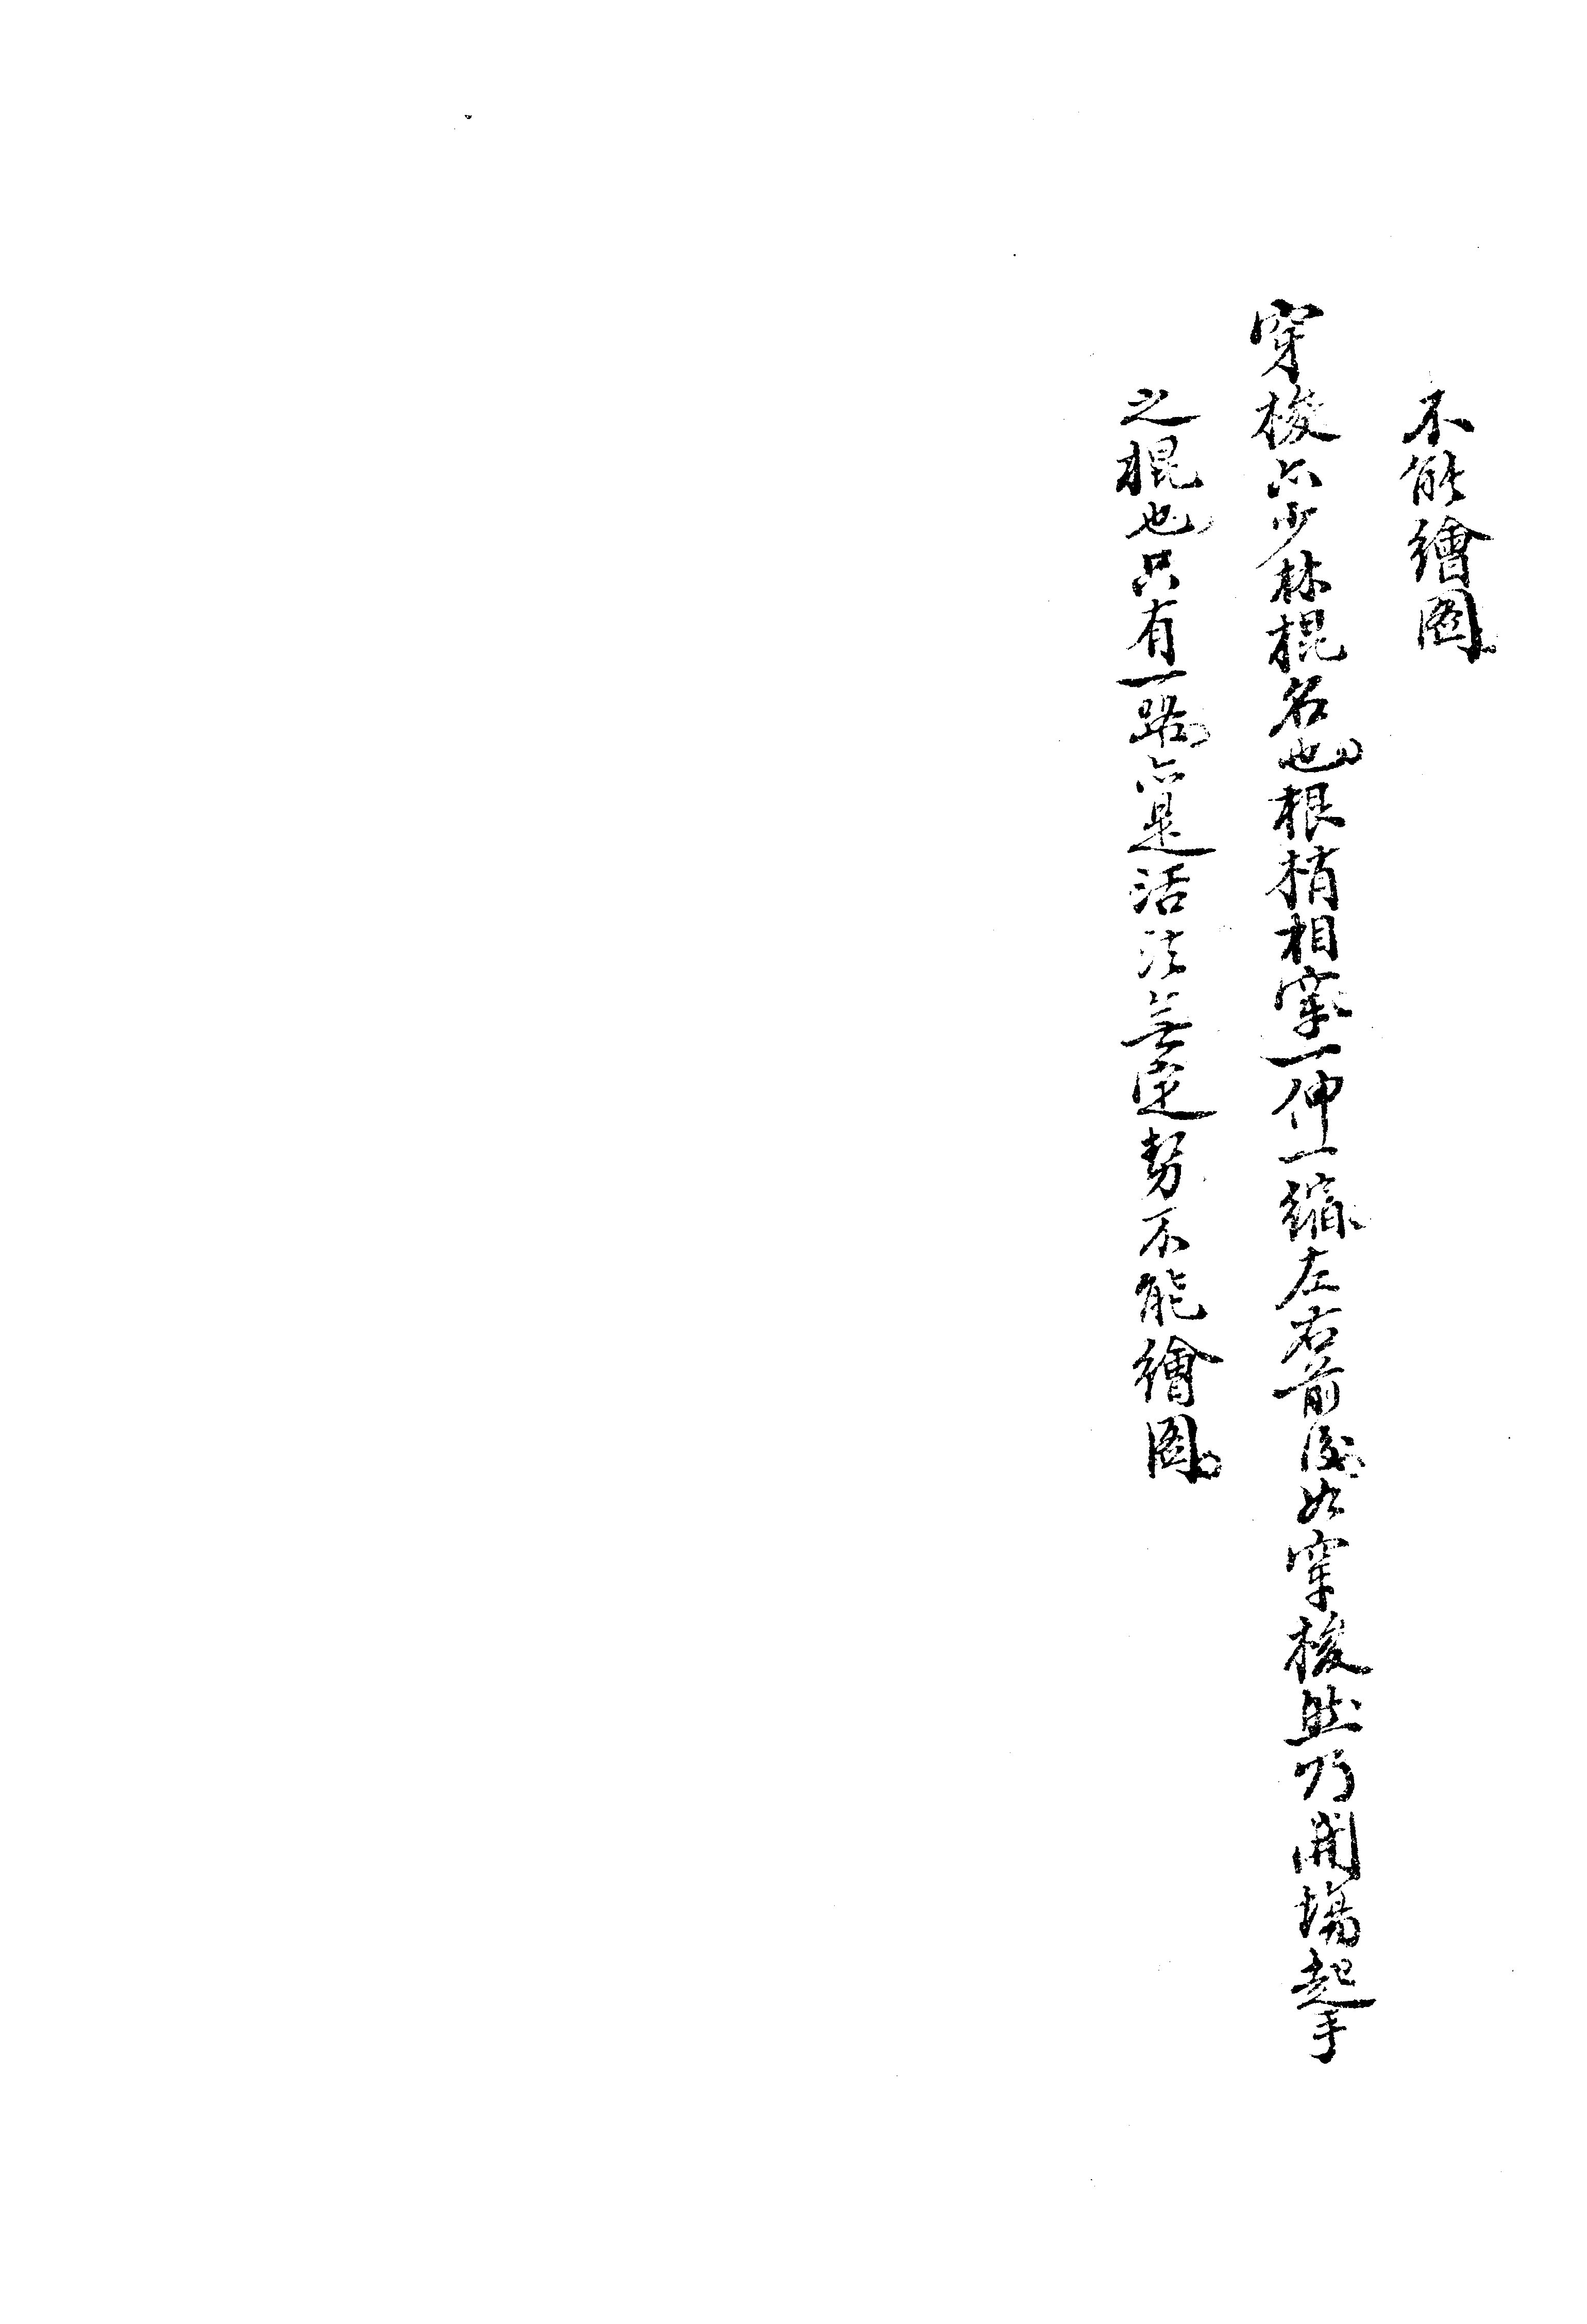 不能繪圖。
穿梭亦少林棍名也。根梢相穿、一伸一縮、左右前後、如穿梭然乃開場起手
之棍也、只有一路、亦是活法無定勢不能繪圖。